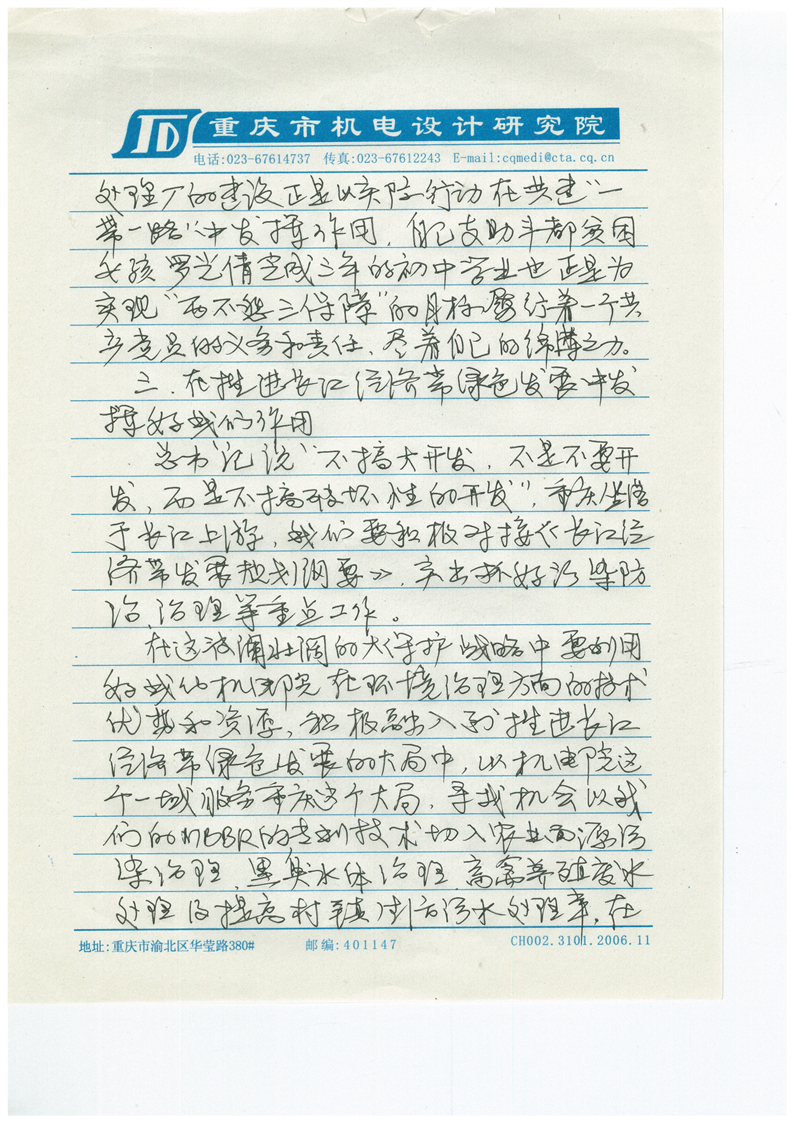 重庆市机电设计研究院
电话:023-67614737 传真:023-67612243 E-mail:cqmedi@cta.cq.cn
处理厂的建设正是以实际行动在共建“一
带一路”中发挥作用，自己支助丰都贫困
女孩罗兰倩完成三年的初中学业也正是为
实现“两不愁三保障”的目标履行着一个共
产党员的义务和责任、尽着自己的绵薄之力。
三、在推进长江经济带绿色发展中发
挥好我们作用
总书记说“不搞大开发，不是不要开
发，而是不搞破坏性的开发”，重庆坐落
于长江上游，我们要积极对接《长江经
济带发展规划纲要》，突出抓好污染防
治、治理等重点工作。
在这波澜壮阔的大保护战略中要利用
好我们机电院在环境治理方面的技术
优势和资源，积极融入到推进长江
经济带绿色发展的大局中，以机电院这
个一域服务重庆这个大局，寻找机会以我
们的MBBR的专利技术切入农业面源污
染治理、黑臭水体治理、畜禽养殖废水
处理及提高村镇生活污水处理率，在
地址:重庆市渝北区华莹路380# 邮编:401147 CH002.3101.2006.11